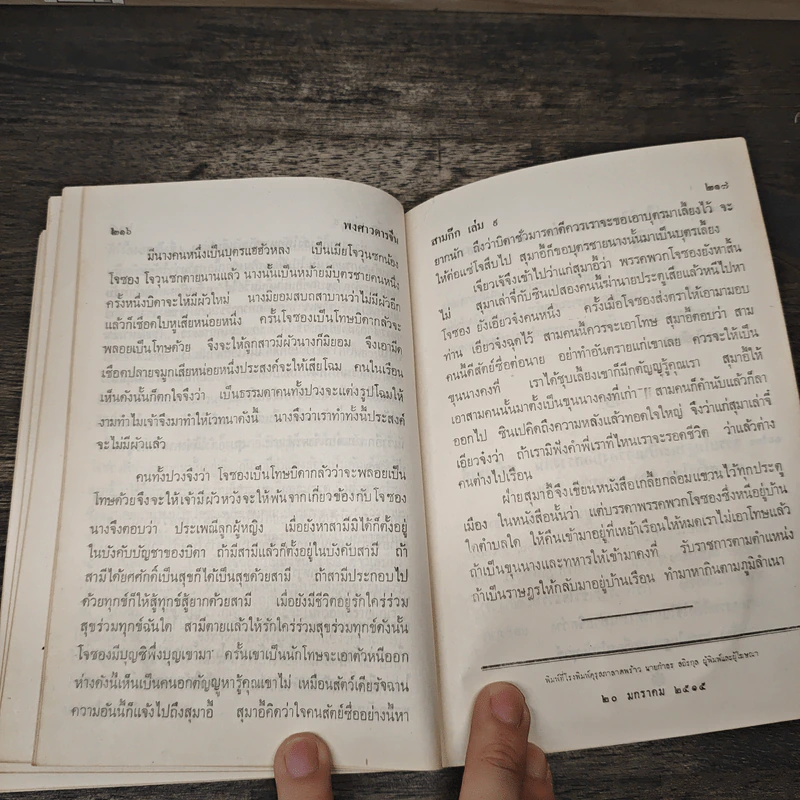 ๒๑๖ พงศาวดารจีน
มีนางคนหนึ่งเป็นบุตรแฮฮัวหลง เป็นเมียโจวุนซกน้อง
โจซอง โจวุนซกตายนานแล้ว นางนั้นเป็นหม้ายมีบุตรชายคนหนึ่ง
ครั้งหนึ่งบิดาจะให้มีผัวใหม่ นางมิยอมสบถสาบานว่าไม่มีผัวอีก
แล้วก็เชือดใบหูเสียหน่อยหนึ่ง ครั้นโจซองเป็นโทษบิดากลัวจะ
พลอยเป็นโทษด้วย จึงจะให้ลูกสาวมีผัวนางก็มิยอม จึงเอามีด
เชือดปลายจมูกเสียหน่อยหนึ่งประสงค์จะให้เสียโฉม คนในเรือน
เห็นดังนั้นก็ตกใจจึงว่า เป็นธรรมดาคนทั้งปวงจะแต่งรูปโฉมให้
งามทำไมเจ้าจึงมาทำให้เวทนาดังนี้ นางจึงว่าเราทำทั้งนี้ประสงค์
จะไม่มีผัวแล้ว
คนทั้งปวงจึงว่า โจซองเป็นโทษบิดากลัวว่าจะพลอยเป็น
โทษด้วยจึงจะให้เจ้ามีผัวหวังจะให้พ้นจากเกี่ยวข้องกับโจซอง
นางจึงตอบว่า ประเพณีลูกผู้หญิง เมื่อยังหาสามีมิได้ก็ตั้งอยู่
ในบังคับบัญชาของบิดา ถ้ามีสามีแล้วก็ตั้งอยู่ในบังคับสามี ถ้า
สามีได้ยศศักดิ์เป็นสุขก็ได้เป็นสุขด้วยสามี ถ้าสามีประกอบไป
ด้วยทุกข์ก็ให้สู้ทุกข์สู้ยากด้วยสามี เมื่อยังมีชีวิตอยู่รักใคร่ร่วม
สุขร่วมทุกข์ฉันใด สามีตายแล้วให้รักใคร่ร่วมสุขร่วมทุกข์ดังนั้น
โจซองมีบุญซิพึ่งบุญเขามา ครั้นเขาเป็นนักโทษจะเอาตัวหนีออก
ห่างดังนี้เห็นเป็นคนอกตัญญูหารู้คุณเขาไม่ เหมือนสัตว์เดียรัจฉาน
ความอันนี้ก็แจ้งไปถึงสุมาอี้ สุมาอี้คิดว่าใจคนสัตย์ซื่ออย่างนี้หา
สามก๊ก เล่ม ๙ ๒๑๗
ยากนัก ถึงว่าบิดาชั่วมารดาดีควรเราจะขอเอาบุตรมาเลี้ยงไว้ จะ
ให้ต่อแซ่โจสืบไป สุมาอี้ก็ขอบุตรชายนางนั้นมาเป็นบุตรเลี้ยง
เจียวเจ้จึงเข้าไปว่าแก่สุมาอี้ว่า พรรคพวกโจซองยังหาสิ้น
ไม่ สุมาเล่าจี๋กับซินเปสองคนนี้ฆ่านายประตูเสียแล้วหนีไปหา
โจซอง ยังเอียวจ๋งคนหนึ่ง ครั้งเมื่อโจซองส่งตราให้เอามามอบ
ท่าน เอียวจ๋งฉุดไว้ สามคนนี้ควรจะเอาโทษ สุมาอี้ตอบว่า สาม
คนนี้ดีสัตย์ซื่อต่อนาย อย่าทำอันตรายแก่เขาเลย ควรจะให้เป็น
ขุนนางคงที่ เราได้ชุบเลี้ยงเขาก็มีกตัญญูรู้คุณเรา สุมาอี้ให้
เอาสามคนนั้นมาตั้งเป็นขุนนางคงที่เก่า สามคนก็คำนับแล้วก็ลา
ออกไป ซินเปคิดถึงความหลังแล้วทอดใจใหญ่ จึงว่าแก่สุมาเล่าจี๋
เอียวจ๋งว่า ถ้าเรามิฟังคำพี่เราที่ไหนเราจะรอดชีวิต ว่าแล้วต่าง
คนต่างไปเรือน
ฝ่ายสุมาอี้จึงเขียนหนังสือเกลี้ยกล่อมแขวนไว้ทุกประตู
เมือง ในหนังสือนั้นว่า แต่บรรดาพรรคพวกโจซองซึ่งหนีอยู่บ้าน
ใดตำบลใด ให้คืนเข้ามาอยู่ที่เหย้าเรือนให้หมดเราไม่เอาโทษแล้ว
ถ้าเป็นขุนนางและทหารให้เข้ามาคงที่ รับราชการตามตำแหน่ง
ถ้าเป็นราษฎรให้กลับมาอยู่บ้านเรือน ทำมาหากินตามภูมิลำเนา
พิมพ์ที่โรงพิมพ์คุรุสภาลาดพร้าว นายกำธร สถิรกุล ผู้พิมพ์และผู้โฆษณา
๒๐ มกราคม ๒๕๑๕